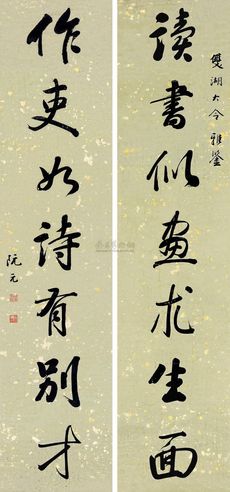 讀書似畫求生面
雙湖大令雅鑒
作吏如詩有別才
阮元